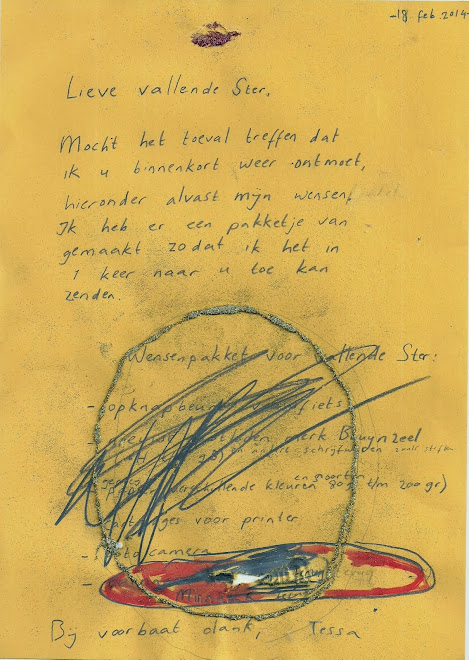 -18 feb. 2014-
Lieve vallende Ster,
Mocht het toeval treffen dat
ik u binnenkort weer ontmoet,
hieronder alvast mijn wensen.
Ik heb er een pakketje van
gemaakt zodat ik het in
1 keer naar u toe kan
zenden.
Wensenpakket voor vallende Ster:
- opknapbeurt fiets
merk Bruynzeel
en andere schrijfwaren zoals stiften
en soorten
verschillende kleuren 80 gr t/m 200 gr)
voor printer
- fotocamera
-
Bij voorbaat dank, Tessa